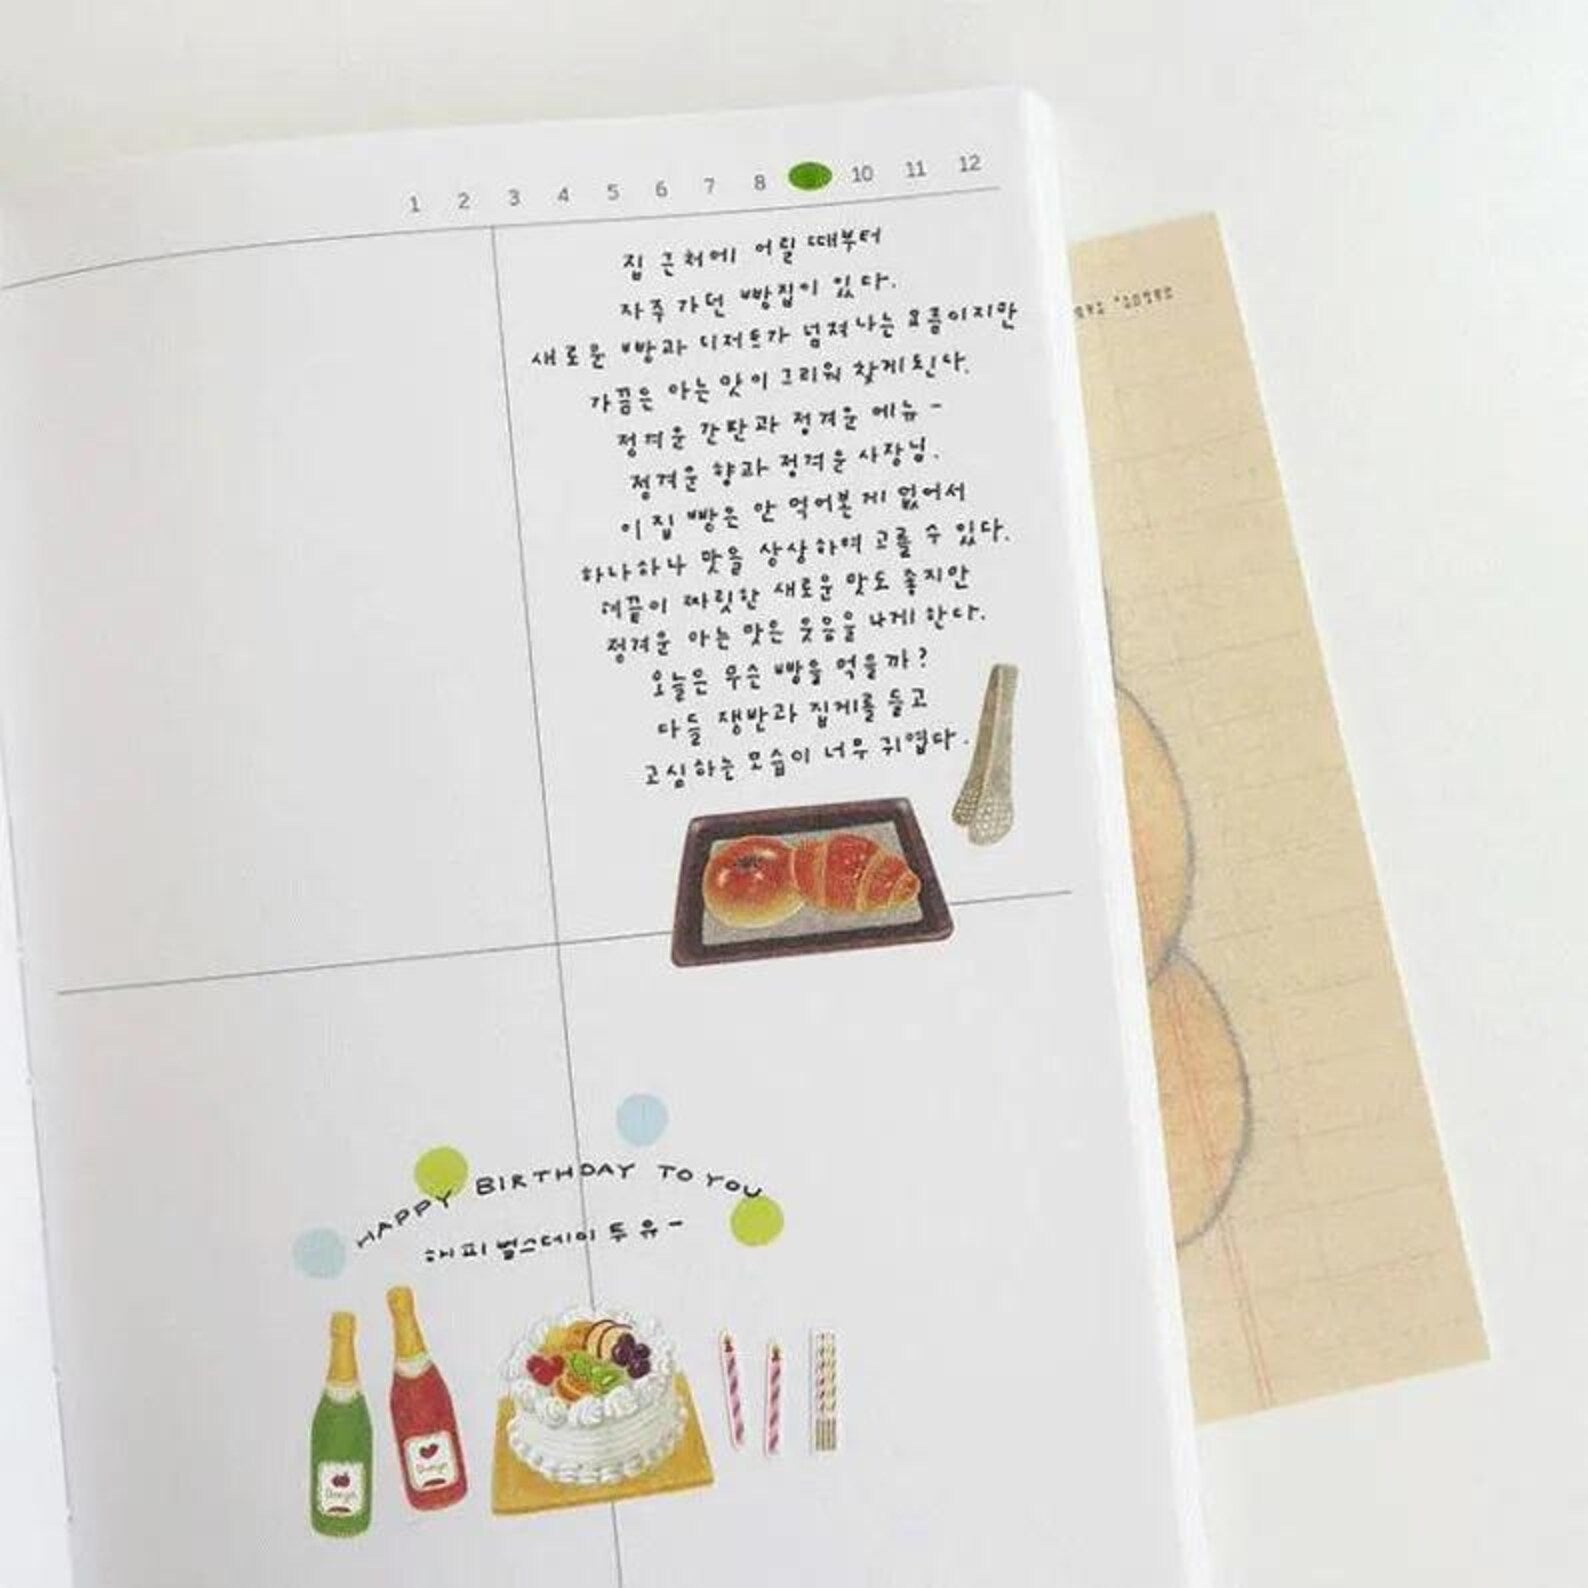 1 2 3 4 5 6 7 8 10 11 12
집 근처에 어릴 때부터
자주 가던 빵집이 있다.
새로운 빵과 디저트가 넘쳐나는 요즘이지만
가끔은 아는 맛이 그리워 찾게된다.
정겨운 간판과 정겨운 메뉴-
정겨운 향과 정겨운 사장님.
이 집 빵은 안 먹어본 게 없어서
하나하나 맛을 상상하며 고를 수 있다.
혀끝이 짜릿한 새로운 맛도 좋지만
정겨운 아는 맛은 웃음을 나게 한다.
오늘은 무슨 빵을 먹을까?
다들 쟁반과 집게를 들고
고심하는 모습이 너무 귀엽다.
HAPPY BIRTHDAY TO YOU
해피 벌스데이 투 유-